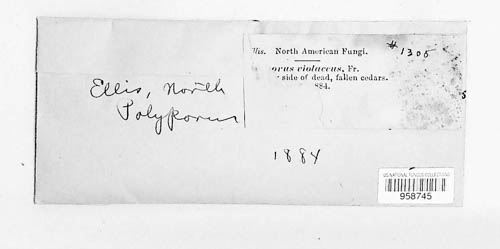 llis. North American Fungi.
#1305
orus violaceus, Fr.
side of dead, fallen cedars.
884.
Ellis, North
Polyporus
1884
US NATIONAL FUNGUS COLLECTIONS
958745